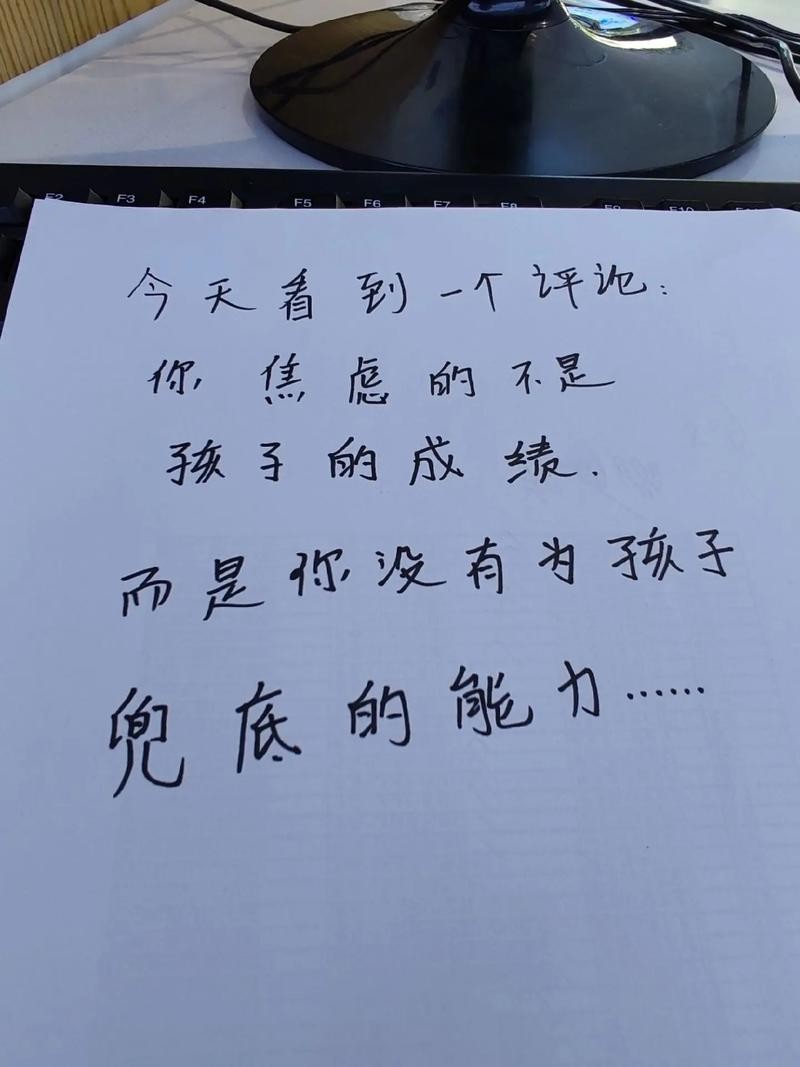 F2 F3 F4 F5 F6 F7 F8 F9 F10
今天看到一个评论:
你焦虑的不是
孩子的成绩.
而是你没有为孩子
兜底的能力……